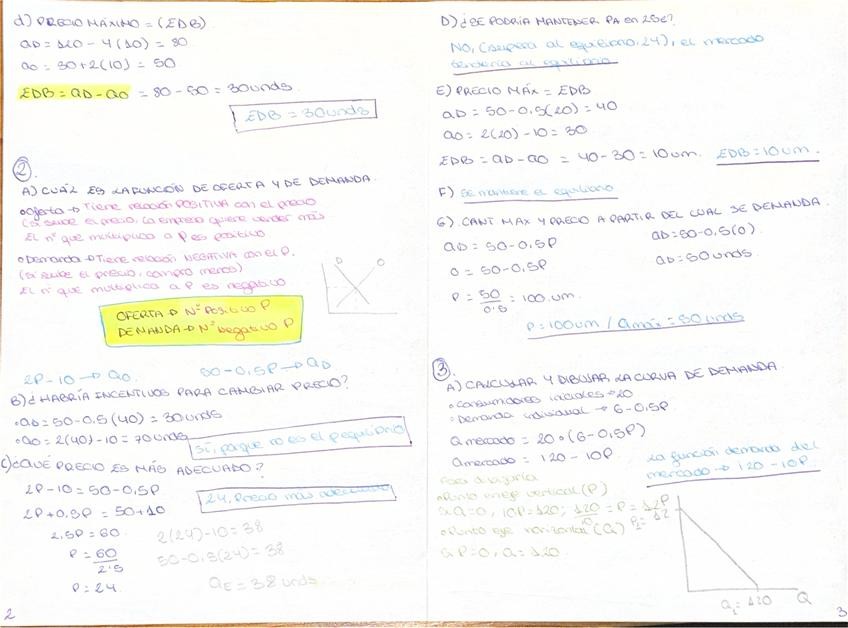 d) PRECIO MÁXIMO = (EDB)
QD = 120 - 4(10) = 80
QO = 30 + 2(10) = 50
EDB = QD - QO = 80 - 50 = 30 unds.
EDB = 30 unds
②.
A) CUÁL ES LA FUNCIÓN DE OFERTA Y DE DEMANDA.
• Oferta → Tiene relación POSITIVA con el precio
(si sube el precio, la empresa quiere vender más
El nº que multiplica a P es positivo
• Demanda → Tiene relación NEGATIVA con el P.
(si sube el precio, compro menos)
El nº que multiplica a P es negativo
D O
OFERTA → Nº Positivo P
DEMANDA → Nº Negativo P
2P - 10 → QO. 50 - 0,5P → QD
B) ¿HABRÍA INCENTIVOS PARA CAMBIAR PRECIO?
• QD = 50 - 0,5(40) = 30 unds
• QO = 2(40) - 10 = 70 unds
Sí, porque no es el P equilibrio
C) ¿QUÉ PRECIO ES MÁS ADECUADO?
2P - 10 = 50 - 0,5P
24, Precio más adecuado
2P + 0,5P = 50 + 10
2,5P = 60
2(24) - 10 = 38
P = 60/2,5
50 - 0,5(24) = 38
P = 24
QE = 38 unds
2
D) ¿SE PODRÍA MANTENER PA en 25€?
No, (supera al equilibrio, 24), el mercado
tendería al equilibrio
E) PRECIO MÁX = EDB
QD = 50 - 0,5(20) = 40
QO = 2(20) - 10 = 30
EDB = QD - QO = 40 - 30 = 10 um. EDB = 10 um.
F) Se mantiene el equilibrio
G) CANT MAX Y PRECIO A PARTIR DEL CUAL SE DEMANDA.
QD = 50 - 0,5P QD = 50 - 0,5(0).
0 = 50 - 0,5P QD = 50 unds.
P = 50/0,5 = 100. um.
P = 100 um / Q máx = 50 unds
③.
A) CALCULAR Y DIBUJAR LA CURVA DE DEMANDA.
• Consumidores iniciales → 20
• Demanda individual → 6 - 0,5P
Q mercado = 20 • (6 - 0,5P)
Q mercado = 120 - 10P.
La función demanda del
mercado → 120 - 10P.
Para dibujarla
• Punto en eje vertical (P)
si Q = 0, 10P = 120; 120/10 = P = 12
• Punto eje horizontal (Q)
si P = 0, Q = 120
P
P1 = 12
Q1 = 120 Q
3